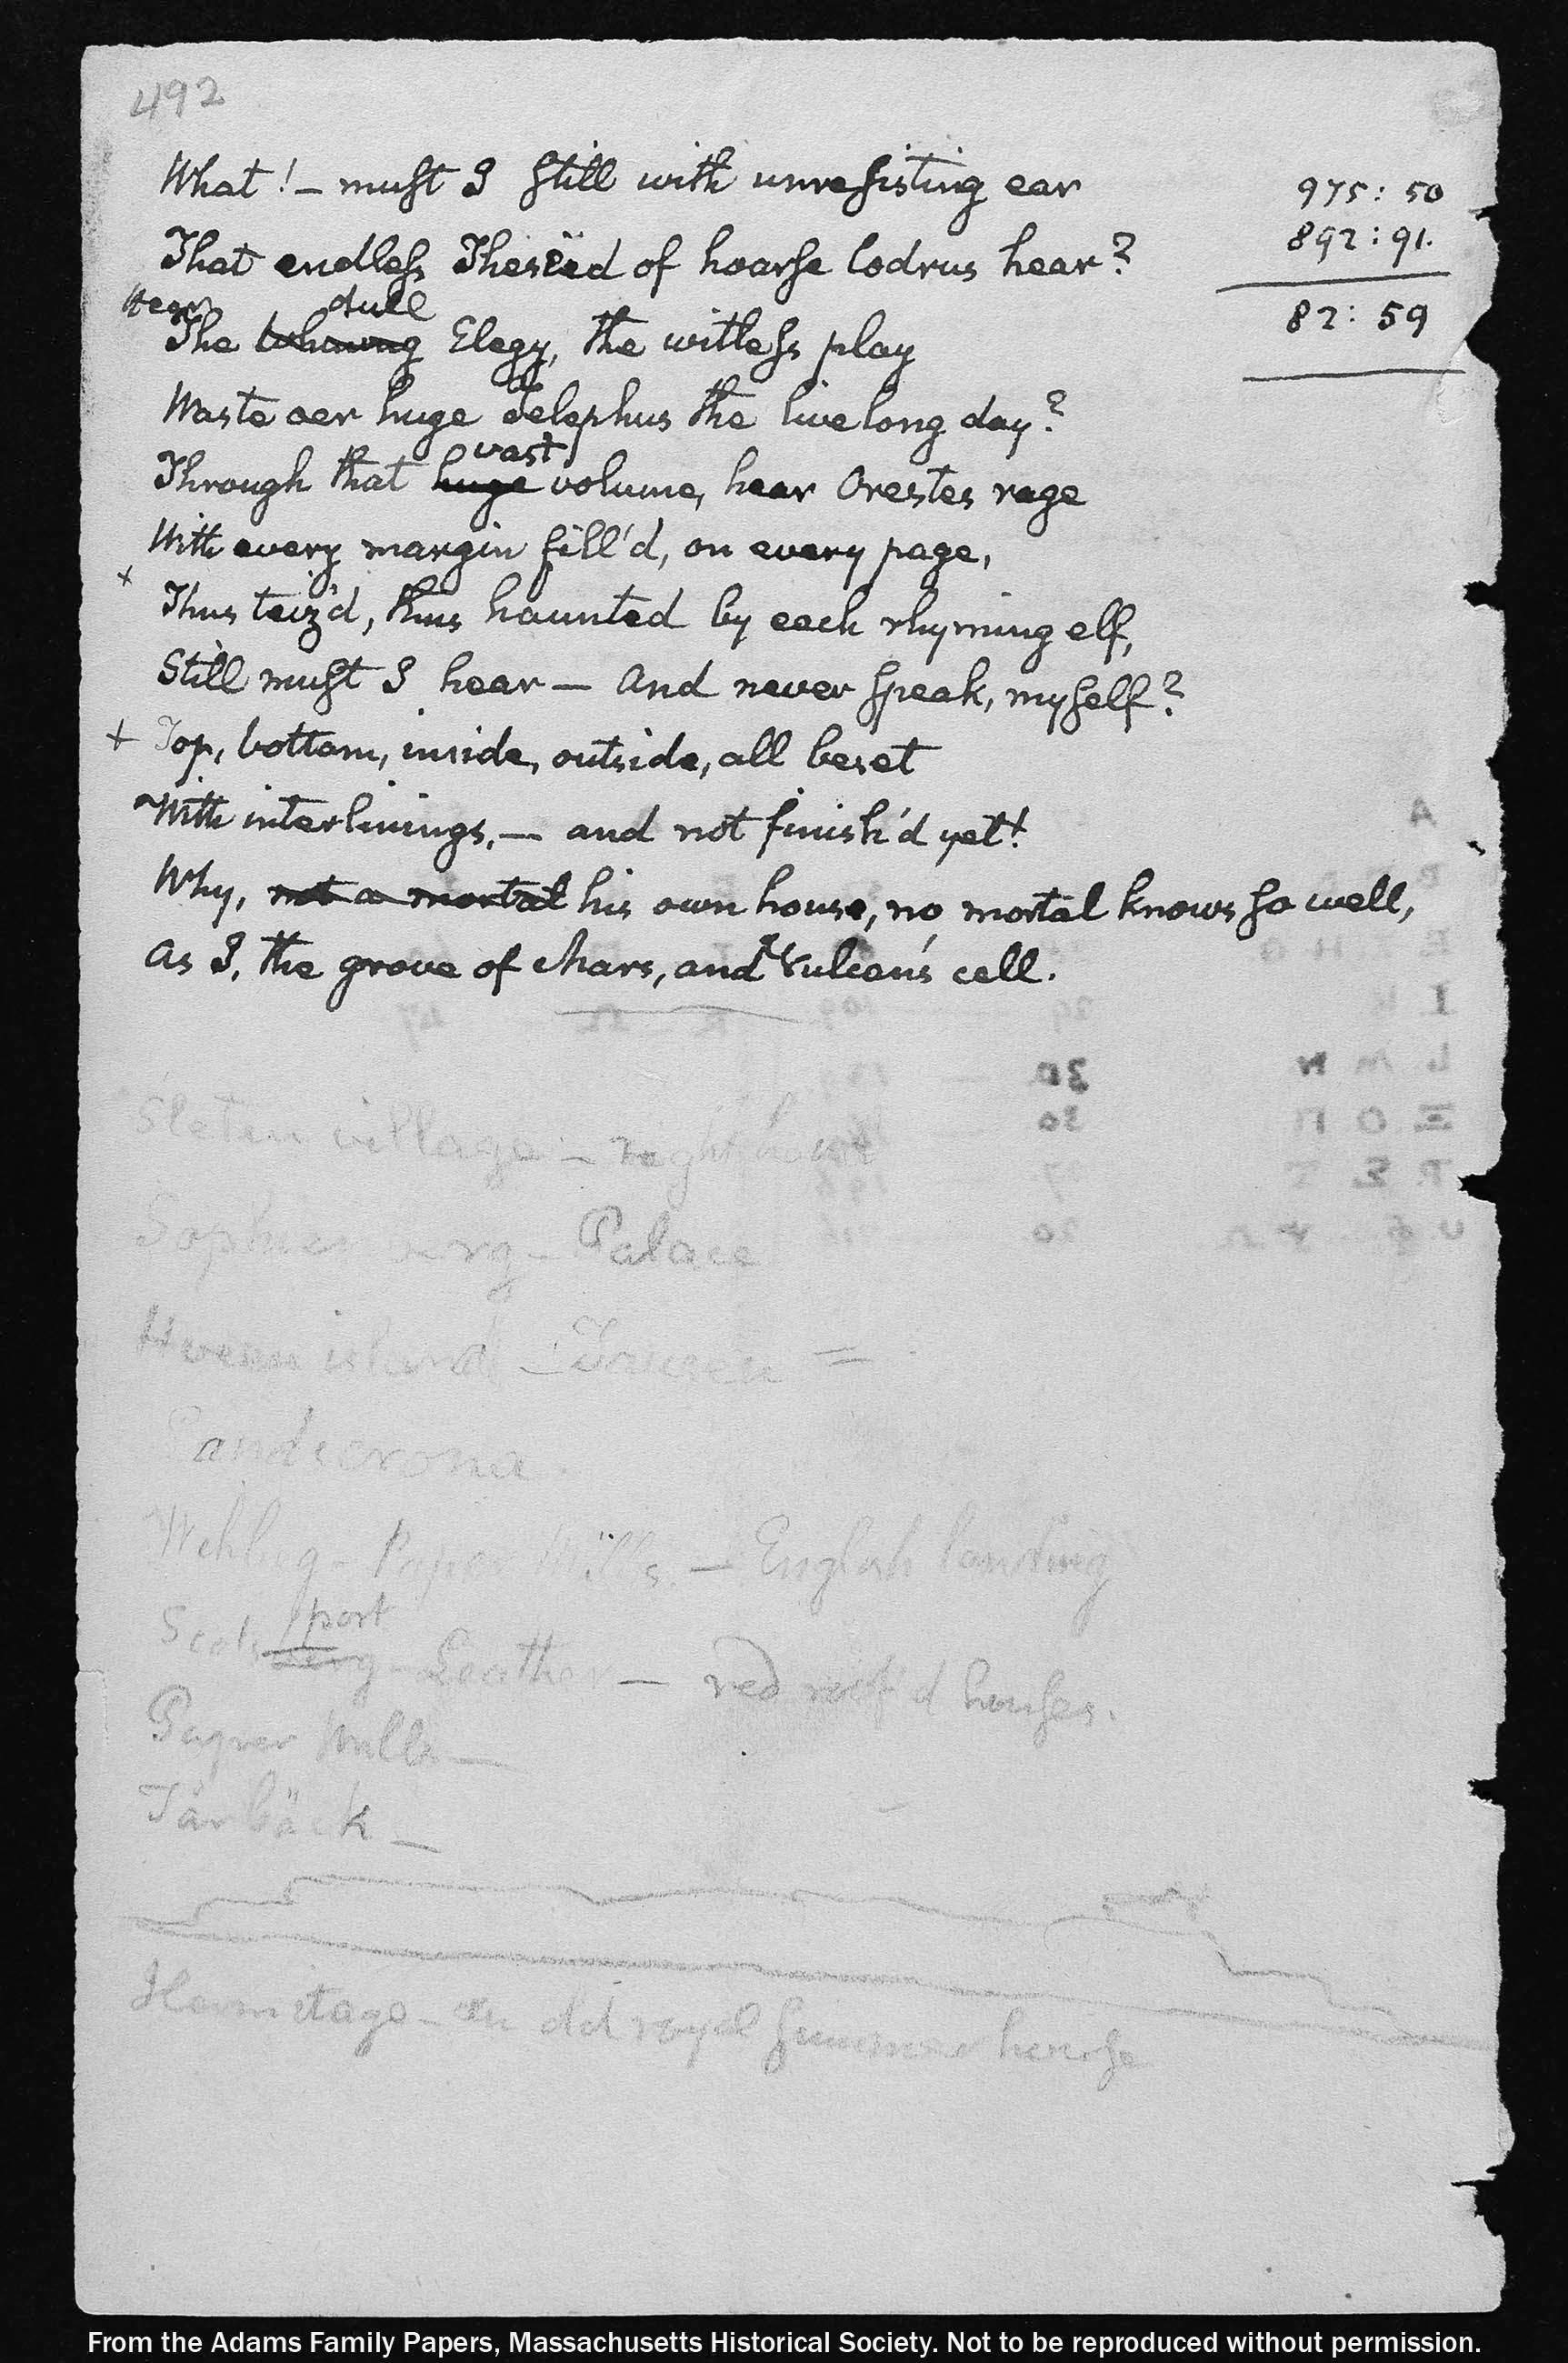 492
What! – must I still with unresisting ear
975: 50
That endless Thesëid of hoarse Codrus hear?
892: 91.
Hear dull
The whining Elegy, the witless play
82: 59
Waste oer huge Telephus the livelong day?
vast
Through that huge volume, hear Orestes rage
With every margin fill'd, on every page,
+ Thus teiz'd, thus haunted by each rhyming elf,
Still must I hear — and never speak, myself?
+ Top, bottom, inside, outside, all beset
With interlinings, — and not finish'd yet!
Why, not a mortal his own house, no mortal knows so well,
As I, the grove of Mars, and Vulcan's cell.
village – right hand
Palace
island –
Paper Mills. – English landing
port
Leather — red roof'd houses.
Paper Mills —
Tarbäck —
Hermitage – an old royal summer house
From the Adams Family Papers, Massachusetts Historical Society. Not to be reproduced without permission.